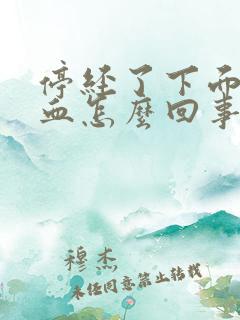 停经了下面
血怎麼回事
穆杰
未经同意禁止转载